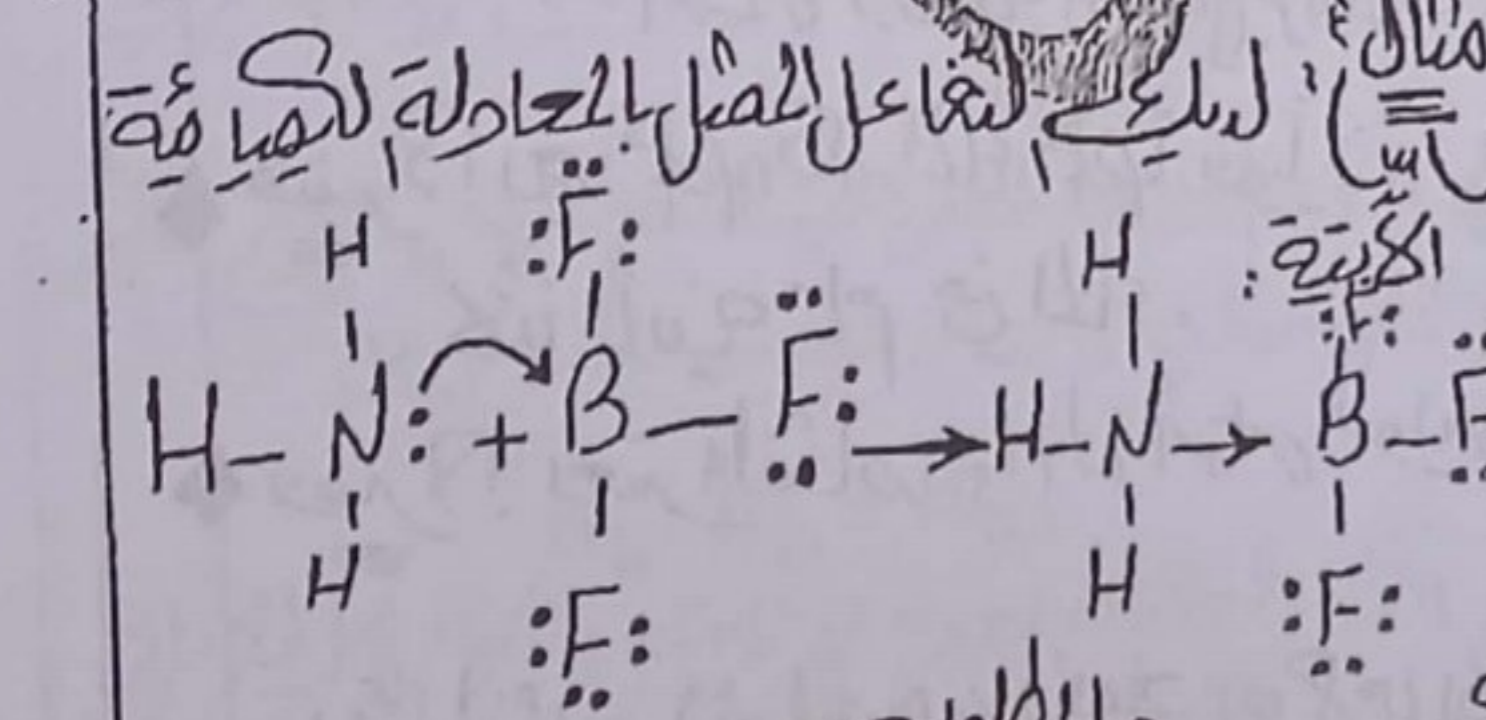 مثال: لديك التفاعل الممثل بالمعادلة الكيميائية
الآتية:
H H
:F: :F:
H–N: + B–F: → H–N → B–F
H H
:F: :F: